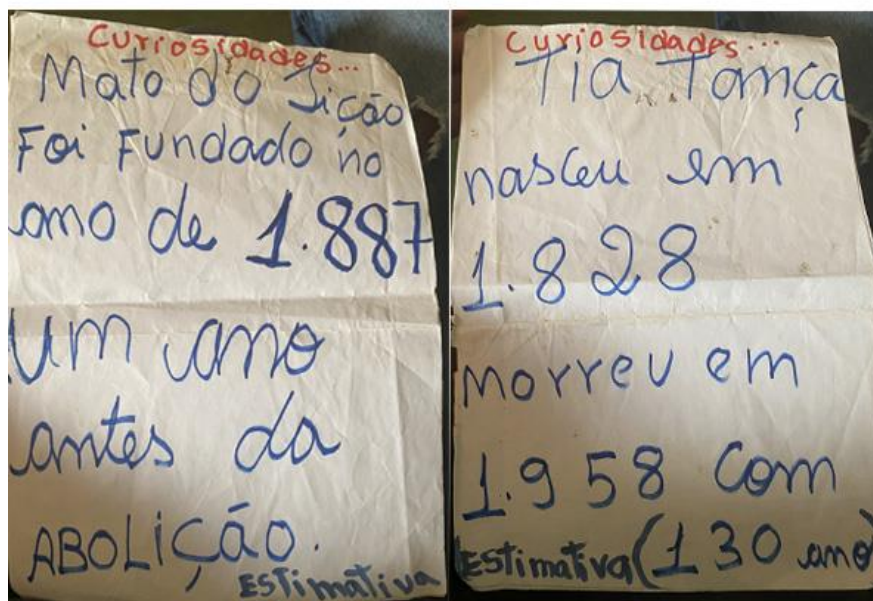 Curiosidades...
Mato do Sição
Foi Fundado no
ano de 1.887
Um ano
antes da
ABOLIÇÃO.
ESTimativa
Curiosidades...
Tia Tomça
nasceu em
1.828
morreu em
1.958 com
Estimativa (130 ano